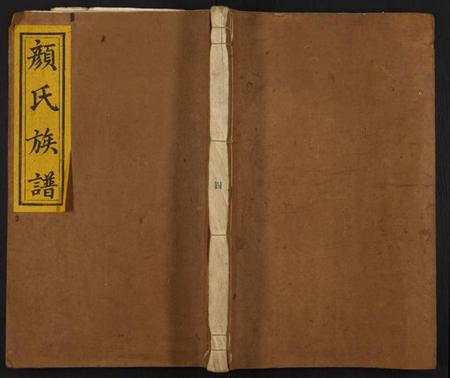 顏氏族譜
四